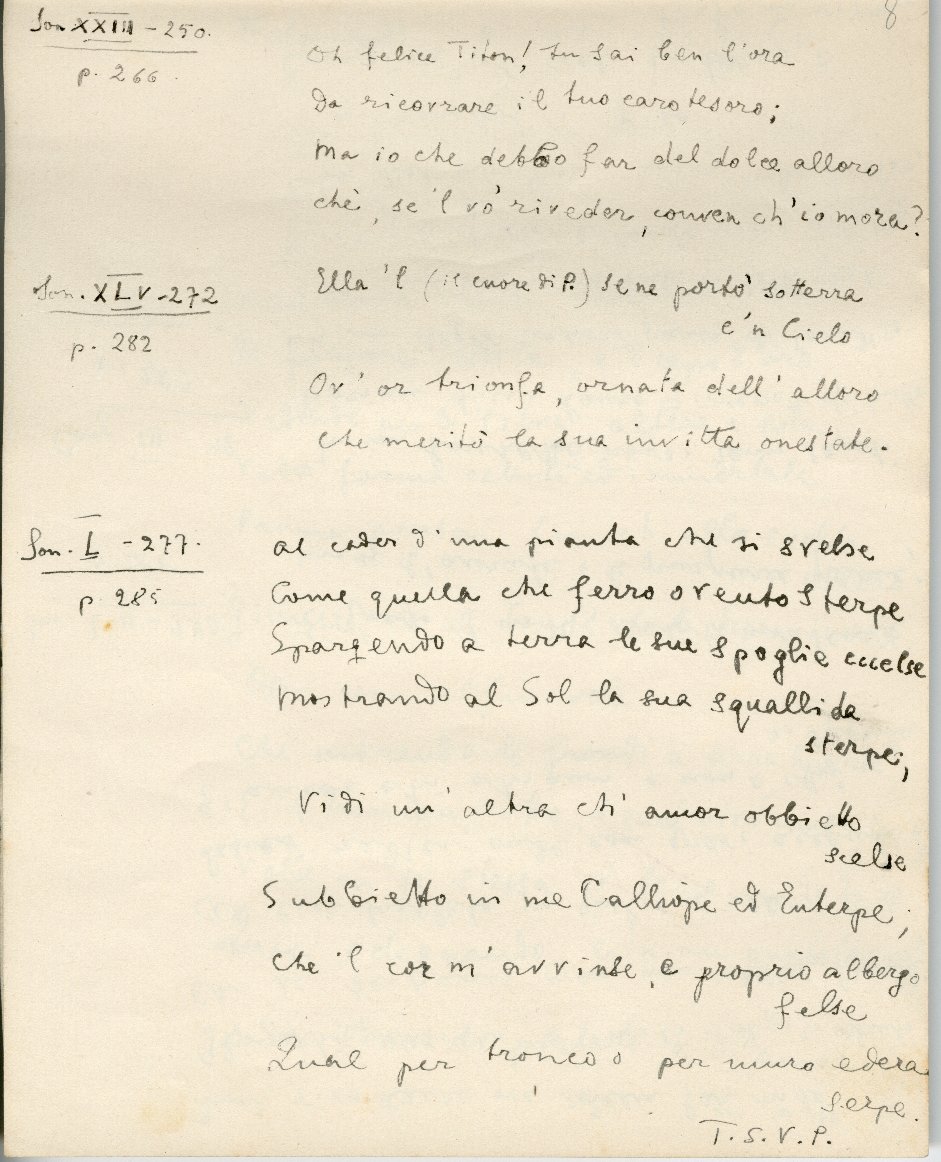 8
Son. XXIII - 250.
p. 266.
Oh felice Titon! tu sai ben l'ora
Da ricovrare il tuo caro tesoro;
Ma io che debbo far del dolce alloro
chè, se 'l vo' riveder, conven ch'io mora?
Son. XLV - 272
p. 282
Ella 'l (il cuore di P.) se ne portò sotterra
e 'n Cielo
Ov' or trionfa, ornata dell' alloro
Che meritò la sua invitta onestate.
Son. L - 277.
p. 285
Al cader d'una pianta che si svelse
Come quella che ferro o vento sterpe
Spargendo a terra le sue spoglie eccelse
Mostrando al Sol la sua squallida
sterpe;
Vidi un' altra ch' amor obbietto
scelse
Subbietto in me Calliope ed Euterpe;
Che 'l cor m'avvinse, e proprio albergo
felse
Qual per tronco o per muro edera
serpe.
T.S.V.P.